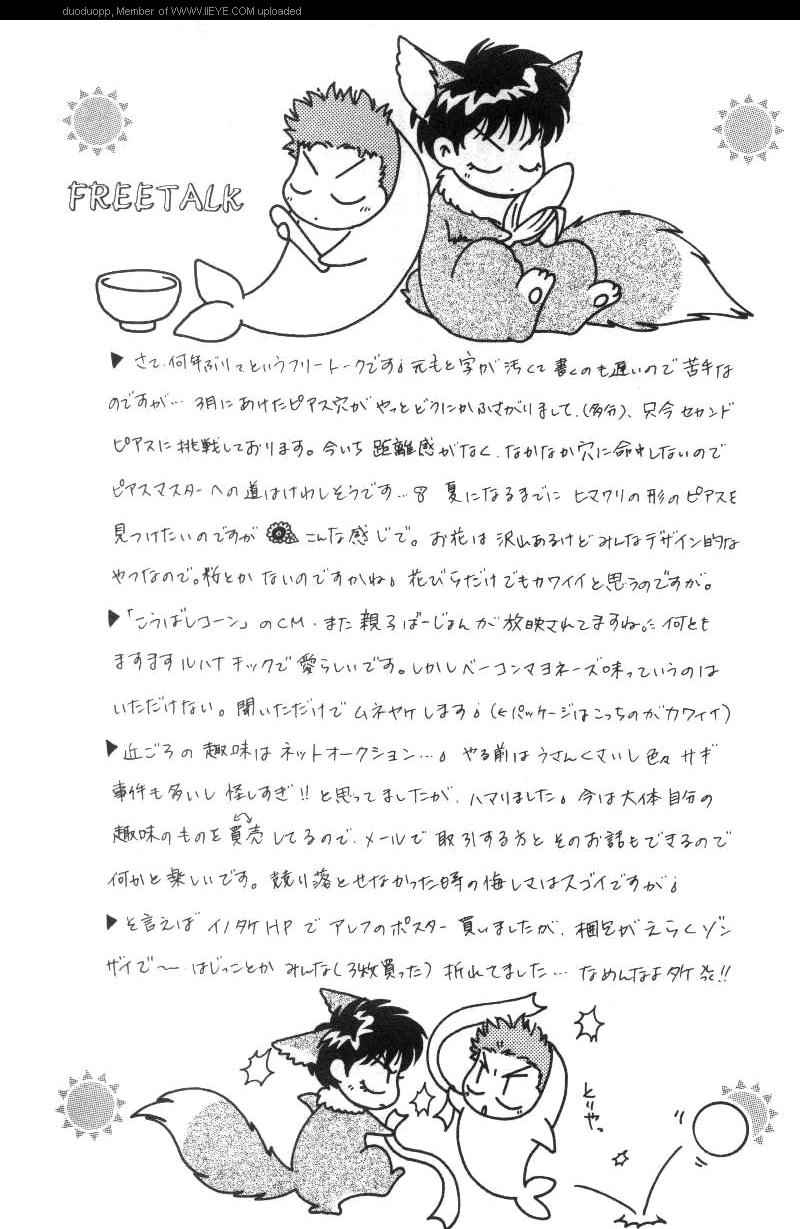 duoduopp, Member of WWW.IIEYE.COM uploaded
FREETALK
▶ さて、何年ぶり?というフリートークです。元もと字が汚くて書くのも遅いので苦手な
のですが… 3月にあけたピアス穴がやっとどうにかふさがりまして、(多分)、只今セカンド
ピアスに挑戦しております。今いち距離感がなく、なかなか穴に命中しないので
ピアスマスターへの道はけわしそうです… 夏になるまでに ヒマワリの形のピアスを
見つけたいのですが こんな感じで。お花は沢山あるけどみんなデザイン的な
やつなので。桜とかないのですかね。花びらだけでもカワイイと思うのですが。
▶「こうばしコーン」のCM、また親子ばーじょんが放映されてますね。 何とも
ますますルハナチックで愛らしいです。しかしベーコンマヨネーズ味っていうのは
いただけない。聞いただけでムネヤケします。(←パッケージはこっちのがカワイイ)
▶近ごろの趣味はネットオークション…。やる前はうさんくさいし色々サギ
事件も多いし怪しすぎ!!と思ってましたが、ハマりました。今は大体自分の
趣味のものを買売してるので、メールで取引する方とそのお話もできるので
何かと楽しいです。競り落とせなかった時の悔しさはスゴイですが。
▶そう言えばイノタケHPでアレフのポスター買いましたが、梱包がえらくゾン
ザイで〜 はじっことかみんな(3枚買った)折れてました… なめんなよタケ
とりゃ。